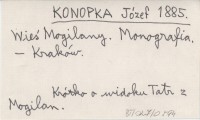 KONOPKA Józef 1885.
Wieś Mogilany. Monografia.
- Kraków.
Krótko o widoku Tatr z
Mogilan.